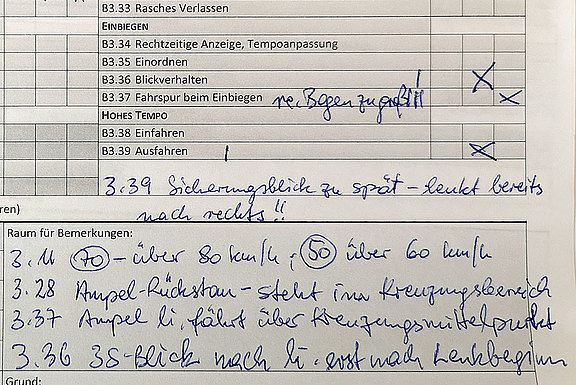 B3.33 Rasches Verlassen
EINBIEGEN
B3.34 Rechtzeitige Anzeige, Tempoanpassung
B3.35 Einordnen
B3.36 Blickverhalten
B3.37 Fahrspur beim Einbiegen re. Bogen zu groß!!
HOHES TEMPO
B3.38 Einfahren
B3.39 Ausfahren
3.39 Sicherungsblick zu spät – lenkt bereits
nach rechts!!
ren)
Raum für Bemerkungen:
3.11 70 – über 80 km/h, 50 über 60 km/h
3.28 Ampel-Rückstau – steht im Kreuzungsbereich
3.37 Ampel li, fährt über Kreuzungsmittelpunkt
3.36 3S-Blick nach li. erst nach Lenkbeginn
Grund: